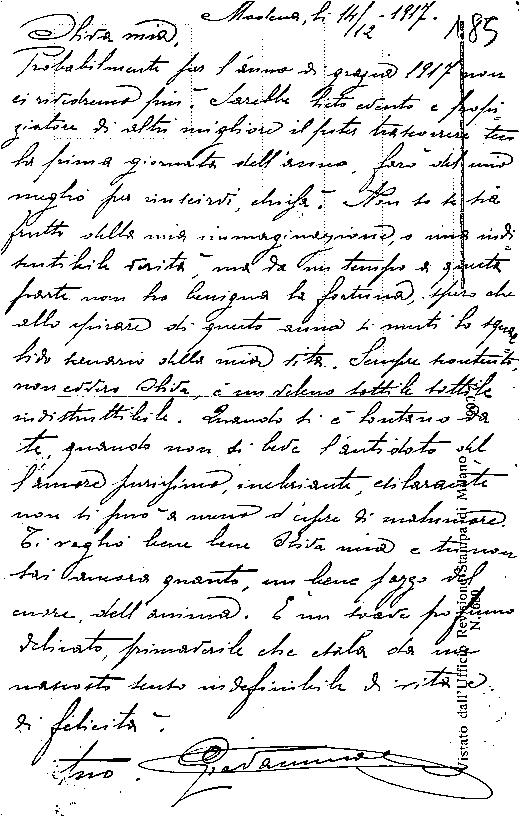 Modena, li 14/12 - 1917.
N° 85
Oliva mia,
Probabilmente per l'anno di grazia 1917 non
ci rivedremo più. Sarebbe lieto evento e propi-
ziatore di altri migliore il poter trascorrere teco
la prima giornata dell'anno, farò del mio
meglio per riuscirvi, chissà. Non so se sia
frutto della mia immaginazione, o una indi-
scutibile verità, ma da un tempo a questa
parte non ho benigna la fortuna, spero che
allo spirare di questo anno si muti lo squal-
lido scenario della mia vita. Sempre
non Oliva, è un veleno sottile sottile
indistruttibile. Quando si è lontano da
te, quando non si beve l'antidoto del
l'amore purissimo, inebriante, esilarante
non si può a meno d'essere di malumore.
Ti voglio bene bene Oliva mia e tu non
sai ancora quanto, un bene pazzo del
cuore, dell'anima. È un soave profumo
delicato, primaverile che esala da un
nascosto senso indefinibile di vita e
di felicità.
Tuo Giovannino
Vistato dall'Ufficio Revisione Stampa di Milano